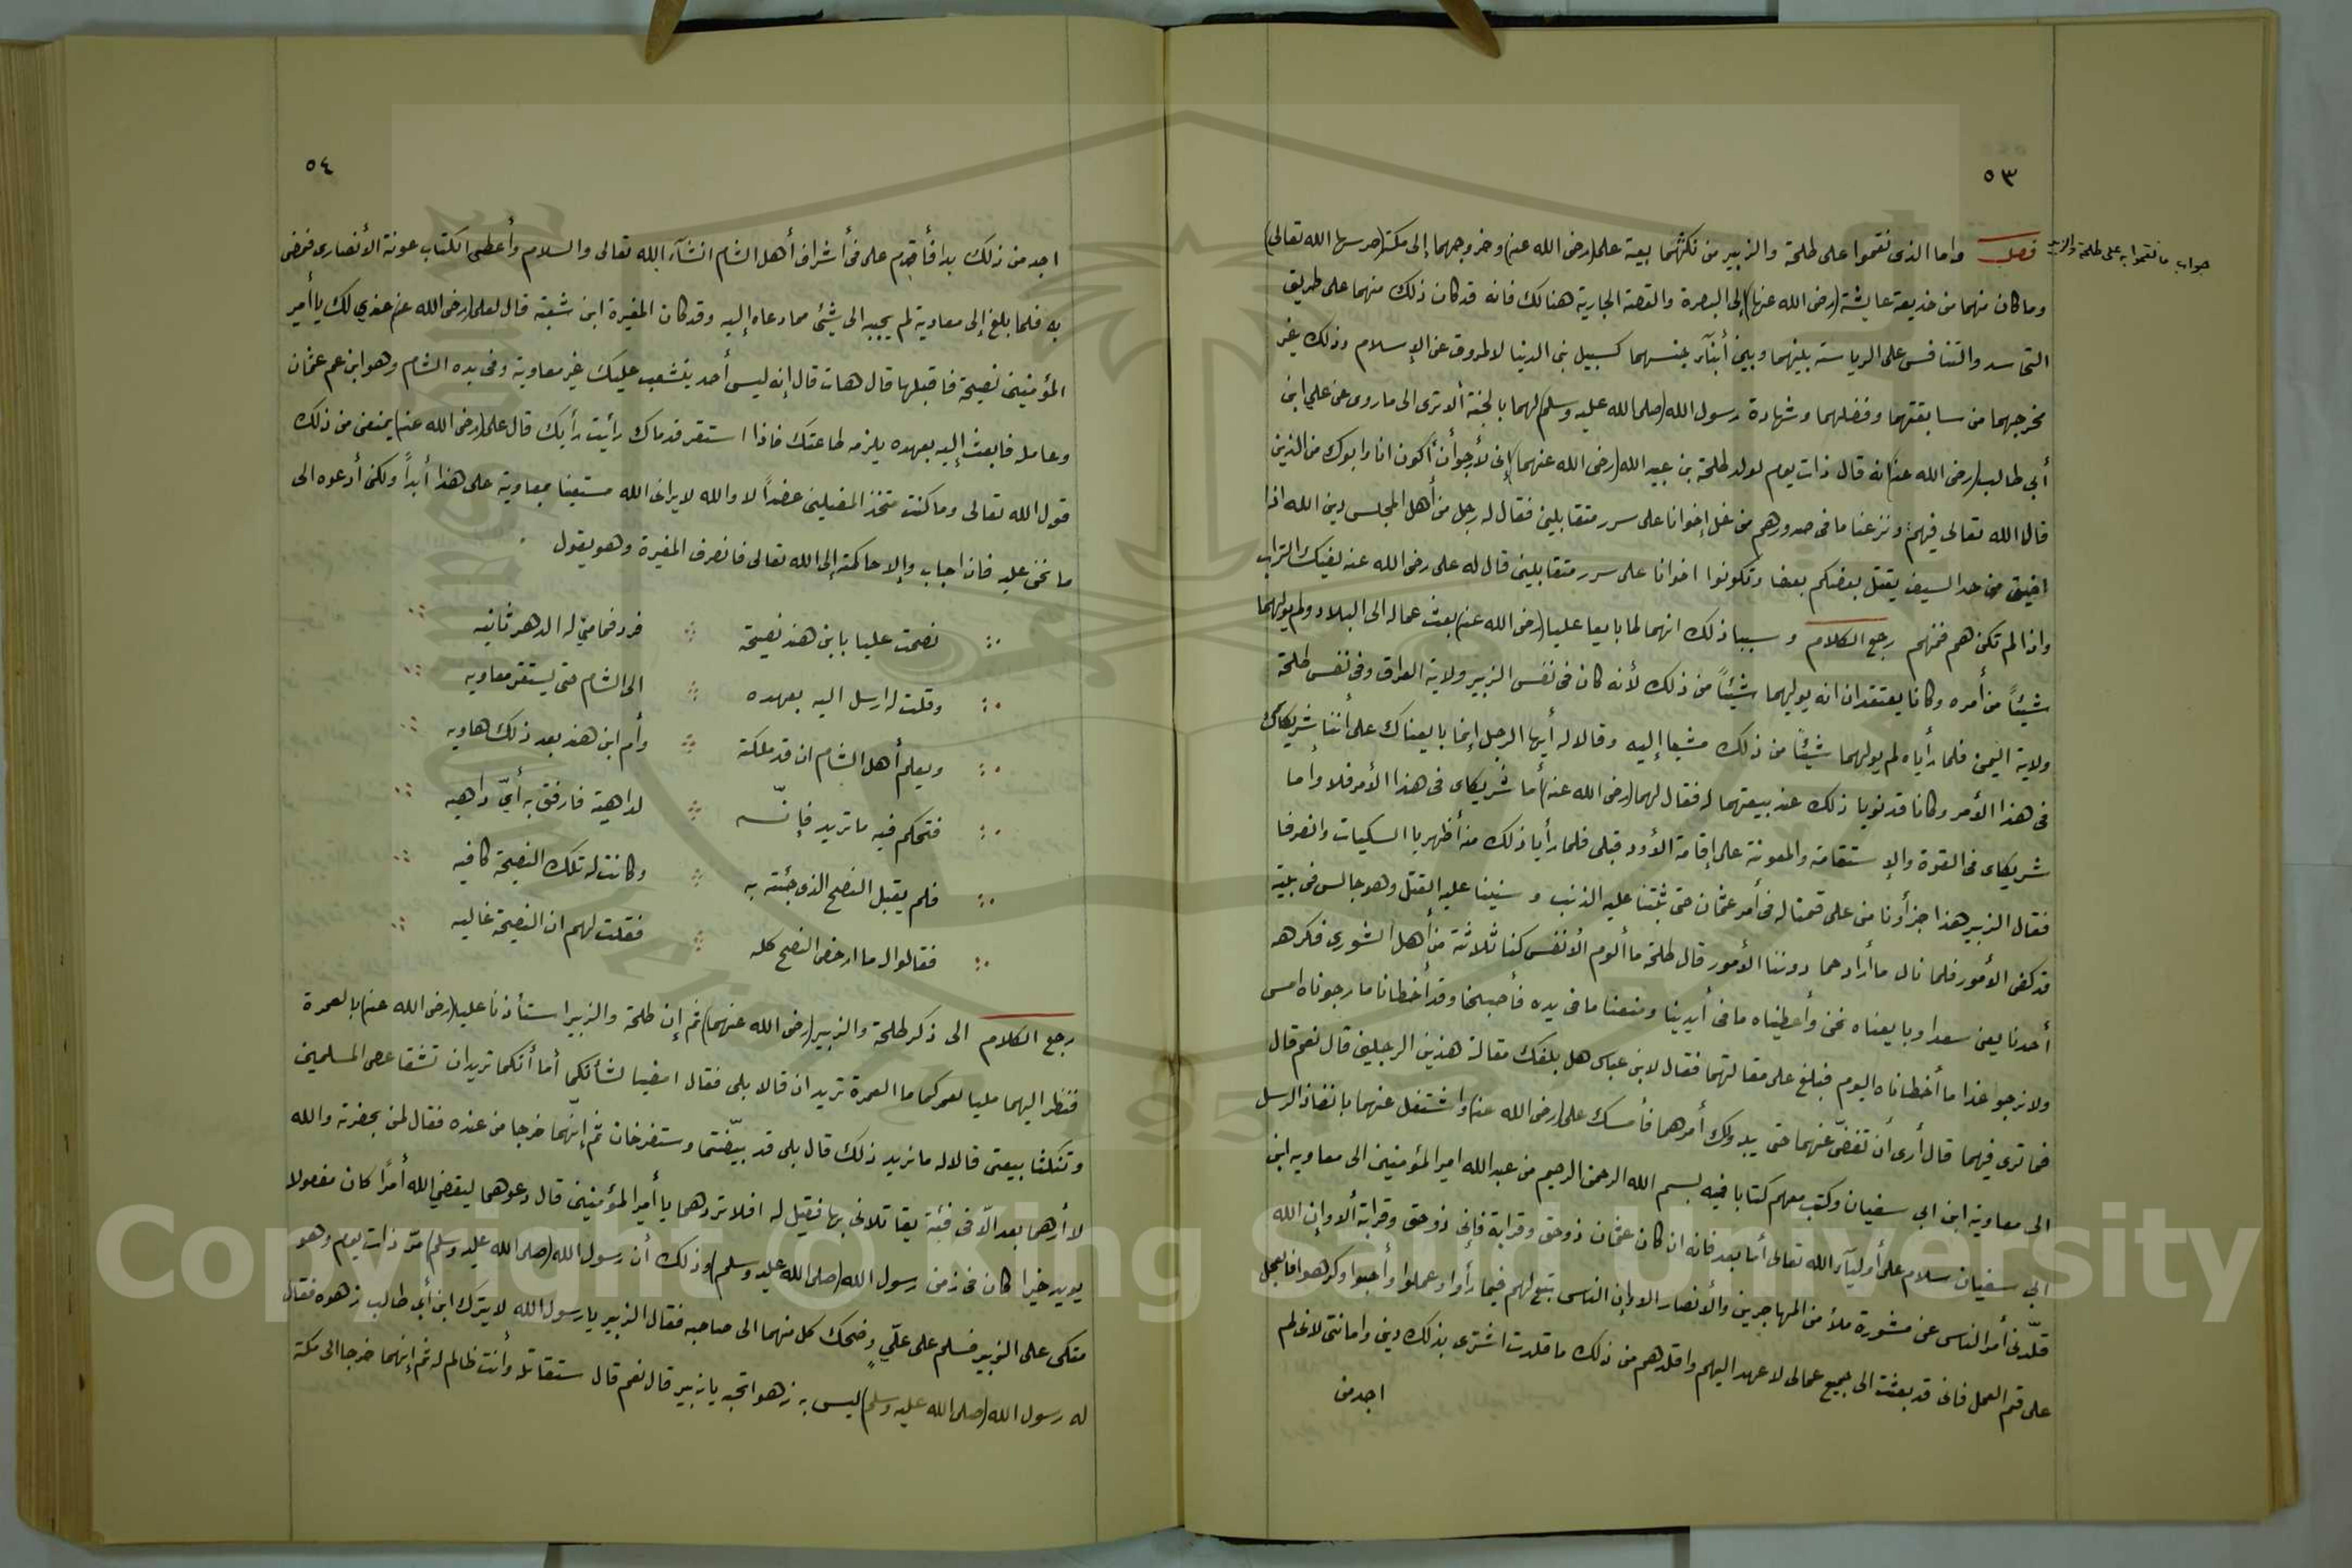 ٥٣
جواب ما نقموا به على طلحة والزبير
فصل واما الذى نقموا على طلحة والزبير من نكثهما بيعة على (رضى الله عنه) وخروجهما إلى مكة (حرسها الله تعالى)
وما كان منهما من خديعة عايشة (رضى الله عنها) إلى البصرة والقصة الجارية هنالك فانه قد كان ذلك منهما على طريق
التحاسد والتنافس على الرياسة بينهما وبين أبنآء جنسهما كسبيل بنى الدنيا لا المروق عن الإسلام وذلك غير
مخرجهما من سابقتهما وفضلهما وشهادة رسول الله (صلى الله عليه وسلم) لهما بالجنة ألا ترى الى ما روى عن علي ابن
أبي طالب (رضى الله عنه) انه قال ذات يوم لولد طلحة بن عبيد الله (رضى الله عنهما) إنى لأرجو أن أكون انا وابوك من الذين
قال الله تعالى فيهم ونزعنا ما فى صدورهم من غل إخوانا على سرر متقابلين فقال له رجل من أهل المجلس دين الله اذا
اضيق من حد السيف يقتل بعضكم بعضا وتكونوا اخوانا على سرر متقابلين قال له على رضى الله عنه بفيك التراب
واذا لم نكن هم فمنهم رجع الكلام وسبب ذلك انهما لما بايعا عليا (رضى الله عنه) بعث عماله الى البلاد ولم يولهما
شيئاً من أمره وكانا يعتقدان انه يوليهما شيئاً من ذلك لأنه كان فى نفس الزبير ولاية العراق وفى نفس طلحة
ولاية اليمن فلما رأياه لم يولهما شيئاً من ذلك مشيا إليه وقالا له أيها الرجل إنما بايعناك على أننا شريكاك
فى هذا الأمر وكانا قد نويا ذلك عند بيعتهما له فقال لهما (رضى الله عنه) أما شريكاى فى هذا الأمر فلا واما
شريكاى فى القوة والإستقامة والمعونة على إقامة الأود فبلى فلما رأيا ذلك منه أظهريا السكيات وانصرفا
فقال الزبير هذا جزأونا من على قمنا له فى أمر عثمان حتى ثبتنا عليه الذنب وسنينا عليه القتل وهو جالس فى بيته
قد كفى الأمور فلما نال ما أراد حما دوننا الأمور قال طلحة ما ألوم الأنفس كنا ثلاثة من أهل الشورى فكرهه
أحدنا يعنى سعدا وبايعناه نحن وأعطيناه ما فى أيدينا ومنعنا ما فى يده فأصبحنا وقد أخطانا ما رجوناه امس
ولا نرجوا غدا ما أخطاناه اليوم فبلغ على مقالتهما فقال لابن عباس هل بلغك مقالة هذين الرجلين قال نعم قال
فما ترى فيهما قال أرى أن تغضّ عنهما حتى يبدو لك أمرهما فأمسك على (رضى الله عنه) واشتغل عنهما بانفاذ الرسل
الى معاوية ابن ابى سفيان وكتب معهم كتابا فيه بسم الله الرحمن الرحيم من عبد الله امير المؤمنين الى معاوية ابن
ابي سفيان سلام على أوليآء الله تعالى أما بعد فانه ان كان عثمان ذو حق وقرابة فإنى ذو حق وقرابة ألا وإن الله
قلّدنى أمر الناس عن مشورة ملأ من المهاجرين والأنصار الا وإن الناس تبع لهم فيما رأوا وعملوا وأحبوا وكرهوا فالعجل
على قم العمل فانى قد بعثت الى جميع عمالى لاعهد اليهم واقلدهم من ذلك ما قلدت اشترى بذلك دينى وامانتى لانى لم
اجد من
٥٤
اجد من ذلك بدا فأقدم على فى أشراف أهل الشام انشآء الله تعالى والسلام وأعطى الكتاب عونة الأنصارى فمضى
به فلما بلغ إلى معاوية لم يجبه الى شيئ مما دعاه إليه وقد كان المغيرة ابن شعبة قال لعلى (رضى الله عنه) عندي لك يا أمير
المؤمنين نصيحة فاقبلها قال هات قال إنه ليس أحد يتشعب عليك غير معاوية وفى يده الشام وهو ابن عم عثمان
وعامله فابعث إليه بعهده يلزمه طاعتك فاذا استقر قدماك رأيت رأيك قال على (رضى الله عنه) يمنعنى من ذلك
قول الله تعالى وما كنت متخذ المضلين عضداً لا والله لا يرانى الله مستعينا بمعاوية على هذا أبداً ولكنى أدعوه الى
ما نحن عليه فان اجاب وإلا حاكمته إلى الله تعالى فانصرف المغيرة وهو يقول
نصحت عليا بابن هند نصيحة فرد فما منى له الدهر ثانيه
وقلت له ارسل اليه بعهده الى الشام حتى يستقر معاويه
ويعلم أهل الشام ان قد ملكته وأم ابن هند بعد ذلك هاويه
فتحكم فيه ما تريد فإنّه لداهية فارفق به أيّ داهيه
فلم يقبل النصح الذى جئته به وكانت له تلك النصيحة كافيه
فقالوا له ما ارخص النصح كله فقلت لهم ان النصيحة غاليه
رجع الكلام الى ذكر طلحة والزبير (رضى الله عنهما) ثم إن طلحة والزبير استأذنا عليا (رضى الله عنه) بالعمرة
فنظر اليهما مليا لعمركما ما العمرة تريدان قالا بلى فقال امضيا لشأنكما أما أنكما تريدان تشقا عصى المسلمين
وتنكثا بيعتى قالا له ما نريد ذلك قال بلى قد بيّضتما وستفرخان ثم إنّهما خرجا من عنده فقال لمن بحضرته والله
لا أرهما بعد الّا فى فئة يقاتلانى بها فقيل له افلا تردهما يا أمير المؤمنين قال دعوهما ليقضي الله أمرًا كان مفعولا
يويد خبرا كان فى زمن رسول الله (صلى الله عليه وسلم) وذلك أن رسول الله (صلى الله عليه وسلم) مرّ ذات يوم وهو
متكى على الزبير فسلم على عليّ وضحك كل منهما الى صاحبه فقال الزبير يا رسول الله لا يترك ابن أبى طالب زهوه فقال
له رسول الله (صلى الله عليه وسلم) ليس به زهو اتحبه يا زبير قال نعم قال ستقاتله وأنت ظالم له ثم إنهما خرجا الى مكة
Copyright © King Saud University